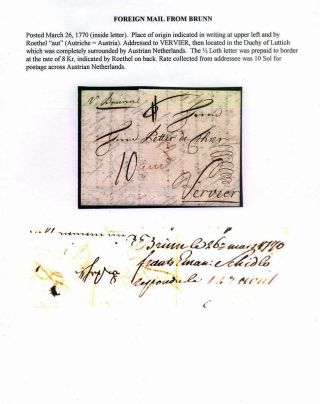 FOREIGN MAIL FROM BRUNN
Posted March 26, 1770 (inside letter). Place of origin indicated in writing at upper left and by
Roethel "aut" (Autriche = Austria). Addressed to VERVIER, then located in the Duchy of Luttich
which was completely surrounded by Austrian Netherlands. The ½ Loth letter was prepaid to border
at the rate of 8 Kr, indicated by Roethel on back. Rate collected from addressee was 10 Sol for
postage across Austrian Netherlands.
V. Brünn
10 aut
Vervier
Brünn le 26 mars 1770